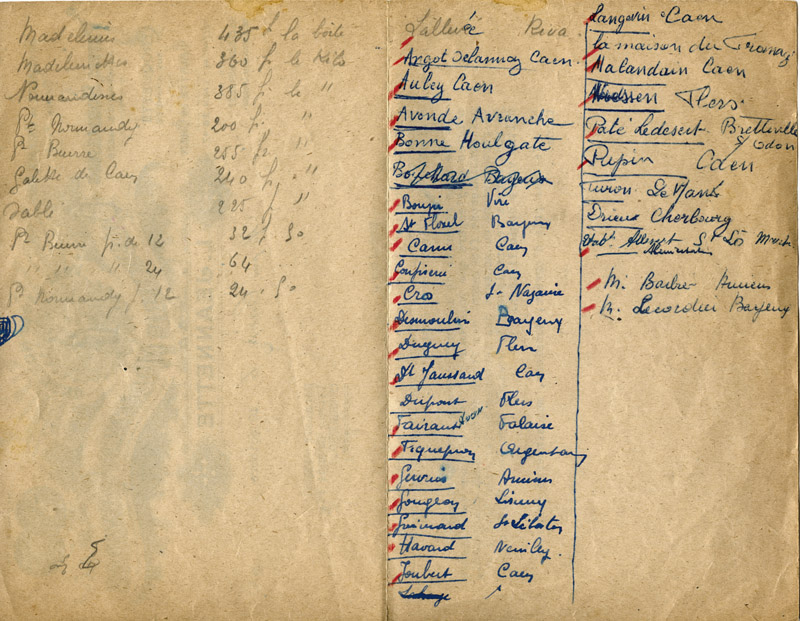 Madeleines 435 f la boîte
Madelinettes 360 f. le Kilo
Normandines 385 f. le "
Pt Normandy 200 f. "
Pt Beurre 255 f. "
Galette de Caen 240 f. "
Sable 225 f. "
Pt Beurre p. de 12 32 f. 50
" " " 24 64.
Pt Normandy p. 12 24.50
Riva
Argot Delannoy Caen
Auley Caen
Avonde Avranche
Bonne Houlgate
Bayeux
Bougis Vire
St Florel Bayeux
Canu Caen
Caen
Cros St Nazaire
Desmoulins Bayeux
Duguey Flers
Caen
Dupont Flers
Falaise
Argentan
Gervais Amiens
Gougeon Lisieux
Guimard
Havard
Joubert Caen
Langevin Caen
La maison du
Malandain Caen
Flers
Paté Ledesert Bretteville s/ Odon
Pepin Caen
Turon Le Mans
Drieux Cherbourg
St Lô
Alimentation
M. Barbier Amiens
M. Lecordier Bayeux